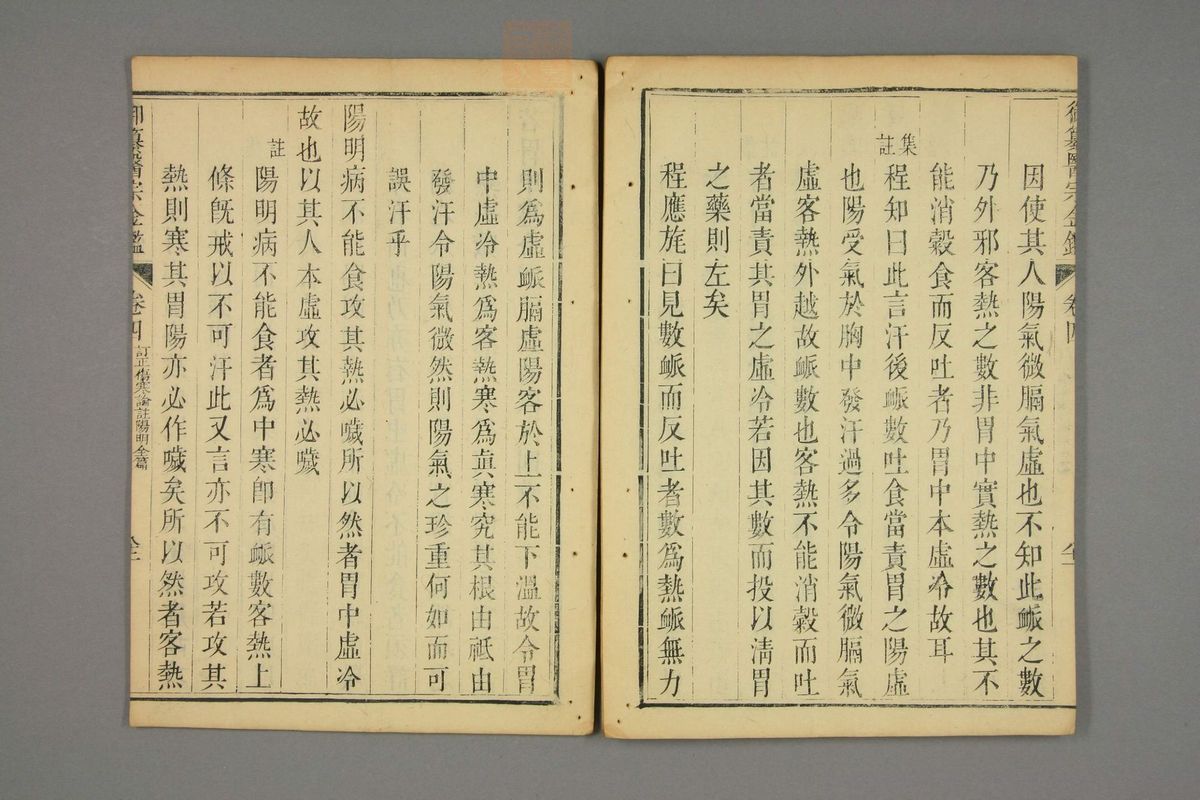 御纂醫宗金鑑 卷四
因使其人陽氣微膈氣虛也不知此脈之數
乃外邪客熱之數非胃中實熱之數也其不
能消穀食而反吐者乃胃中本虛冷故耳
集註
程知曰此言汗後脈數吐食當責胃之陽虛
也陽受氣於胸中發汗過多令陽氣微膈氣
虛客熱外越故脈數也客熱不能消穀而吐
者當責其胃之虛冷若因其數而投以清胃
之藥則左矣
程應旄曰見數脈而反吐者數爲熱脈無力
則爲虛脈膈虛陽客於上不能下溫故令胃
中虛冷熱爲客熱寒爲眞寒究其根由祗由
發汗令陽氣微然則陽氣之珍重何如而可
誤汗乎
陽明病不能食攻其熱必噦所以然者胃中虛冷
故也以其人本虛攻其熱必噦
註
陽明病不能食者爲中寒卽有脈數客熱上
條旣戒以不可汗此又言亦不可攻若攻其
熱則寒其胃陽亦必作噦矣所以然者客熱
御纂醫宗金鑑 卷四 訂正傷寒論註陽明全篇